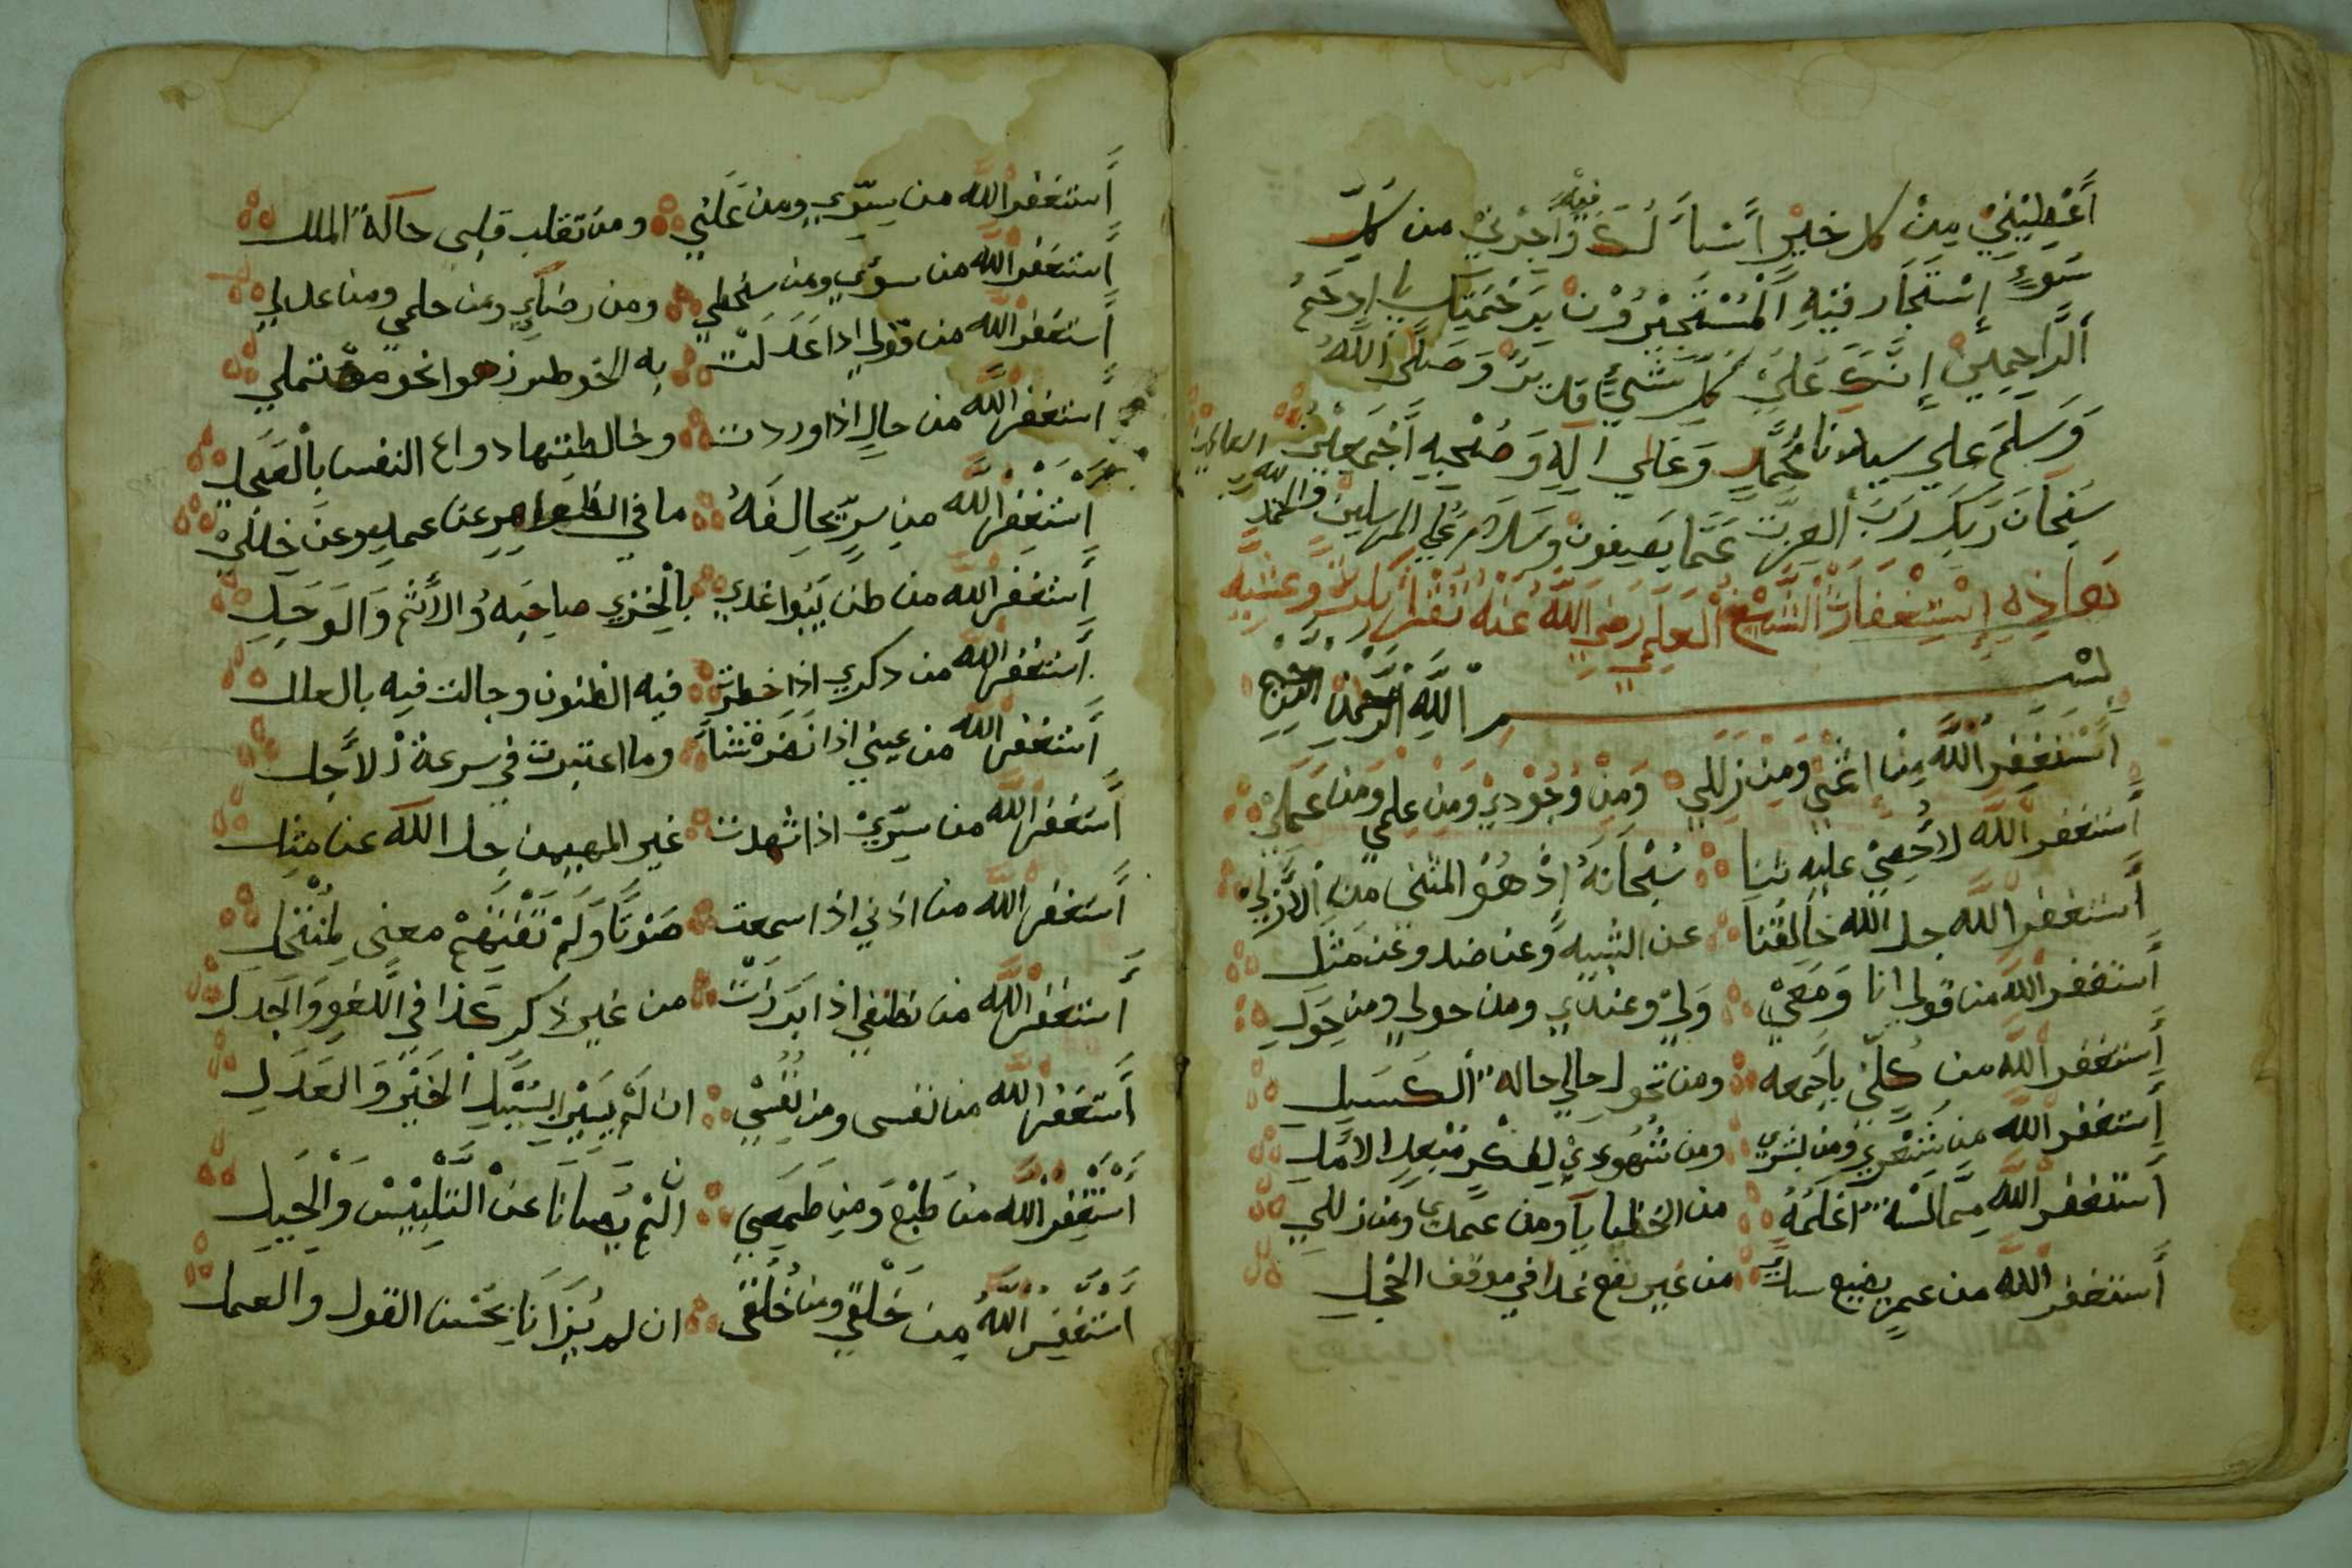 أَعْطِيْنِيْ مِنْ كل خَيْرٍ أَسْأَلُكَ فِيْهِ وَأَجْرِنِيْ من كلِّ
سَوْءٍ إِسْتَجَارَ فِيْهِ الْمُسْتَجِيْرُوْنَ بِرَحْمَتِكَ يا ارحَمُ
الرَّاحِمِيْنَ إِنَّكَ عَلَيْ كُلِّ شَيْءٍ قديرٌ وَصَلَّى اللَّهُ
وَسَلِّمَ علي سيدنا مُحَمَّدٍ وَعَلي آلِهِ وَصَحْبِهِ أَجْمَعِيْنَ
سُبْحَانَ رَبِّكَ رَبِّ العِزَّتِ عَمَّا يَصِفُونَ وَسَلَامٌ عَلي المرسلين والحمد لله رب العالمين
هَاذِهِ إِسْتِغْفَارَةُ الشَّيْخ العَلَمِي رَضِيَ اللَّهُ عَنْهُ
بسْمِ اللَّهِ الرَّحْمنِ الرَّحِيْمِ
أَسْتَغْفِرُ اللَّه مِنْ اثمي وَمِنْ زللي وَمِنْ وُجُوْدِيْ وَمِن عِلمي وَمَن عَمَلِيْ
أَستغفر اللَّه لا أُحْصِيْ عليه ثنا سُبْحَانَهُ إِذْ هُوْ المثنى من الْأَزَلِيْ
أَستغفر اللَّه جل اللَّه خَالِقُنَا عن الشبيه وَعن ضد وعَن مَثَلِ
أَستغفر اللَّه من قولي انا وَمَعِيْ وَلِيْ وعندي ومن حولي ومن حِوَلِ
أَستغفر اللَّه من كُلِّيْ بأجمعه ومن تحول حالي حالة الكسيل
أَستغفر اللَّه من شَعْرِيْ ومن بشري ومن شُهُودِيْ لفكرٍ مُبْعِدِ الامَلِ
أَستغفر اللَّه مِمَّا لَسْتُ اعْلَمُهُ من الخطايآ ومن عمدي ومَن زللي
أَستغفر اللَّه من عمرٍ يضيع سدً من غير نفع غدا في موقف الخجل
أَستغفر اللَّه من سِرّي ومن عَلَنِي ومن تقلب قلبي حالة الملل
أَستغفر اللَّه من سوءي ومن سخطي ومن رضآي ومن حلمي ومن عدلي
أَستغفر اللَّه من قولي اذا عَدَلَتْ به الخواطر زهوا نحو مشتملي
أَستغفر اللَّه من حالٍ اذا وردت وخالطتها دواع النفس بالْعَجَلِ
أَسْتَغْفِرُ اللَّه من سِرٍّ يخالِفَهُ ما في الظواهرِ عن عمدٍ وعَن خللي
أَستغفر اللَّه من ظن يَبُوا غدي بالخزي صاحِبَهُ والأثم وَالوَجَلِ
أَستغفر اللَّه من ذكري اذا خطرت فيه الظنون وجالت فيه بالعلل
أَستغفر اللَّه من عيني اذا نَضَرَتْ شَيأً وما اعتبرت في سرعة الأَجل
أَستغفر اللَّه من سِرّيْ اذا شهدت غير المهيمن جل اللَّه عن مثل
أَستغفر اللَّه من اذني اذا سمعت صَوْتًا وَلَمْ تَفْتَهِمْ معنى لِمُنْتَحَلِ
أَستغفر اللَّه من نطقي اذا بَدَرَتْ من غير ذكرٍ غدا في اللَّغو وَالجدل
أَستغفر اللَّه من نفسي ومن نَفَسِيْ ان لَمْ يَسِيْر بِسُبُلِ الخَيْرِ وَالعَدَلِ
أَسْتَغْفِرُ اللَّه من طَبْعٍ وَمِن طَمَعِي ان لَمْ يُصانَا عَنْ التَّلْبِيْسِ وَالْحِيَلِ
أَسْتَغْفِرُ اللَّهَ مِن خَلْقِي ومِن خُلُقِى ان لم يُزَانَا بِحُسْن القول والعمل